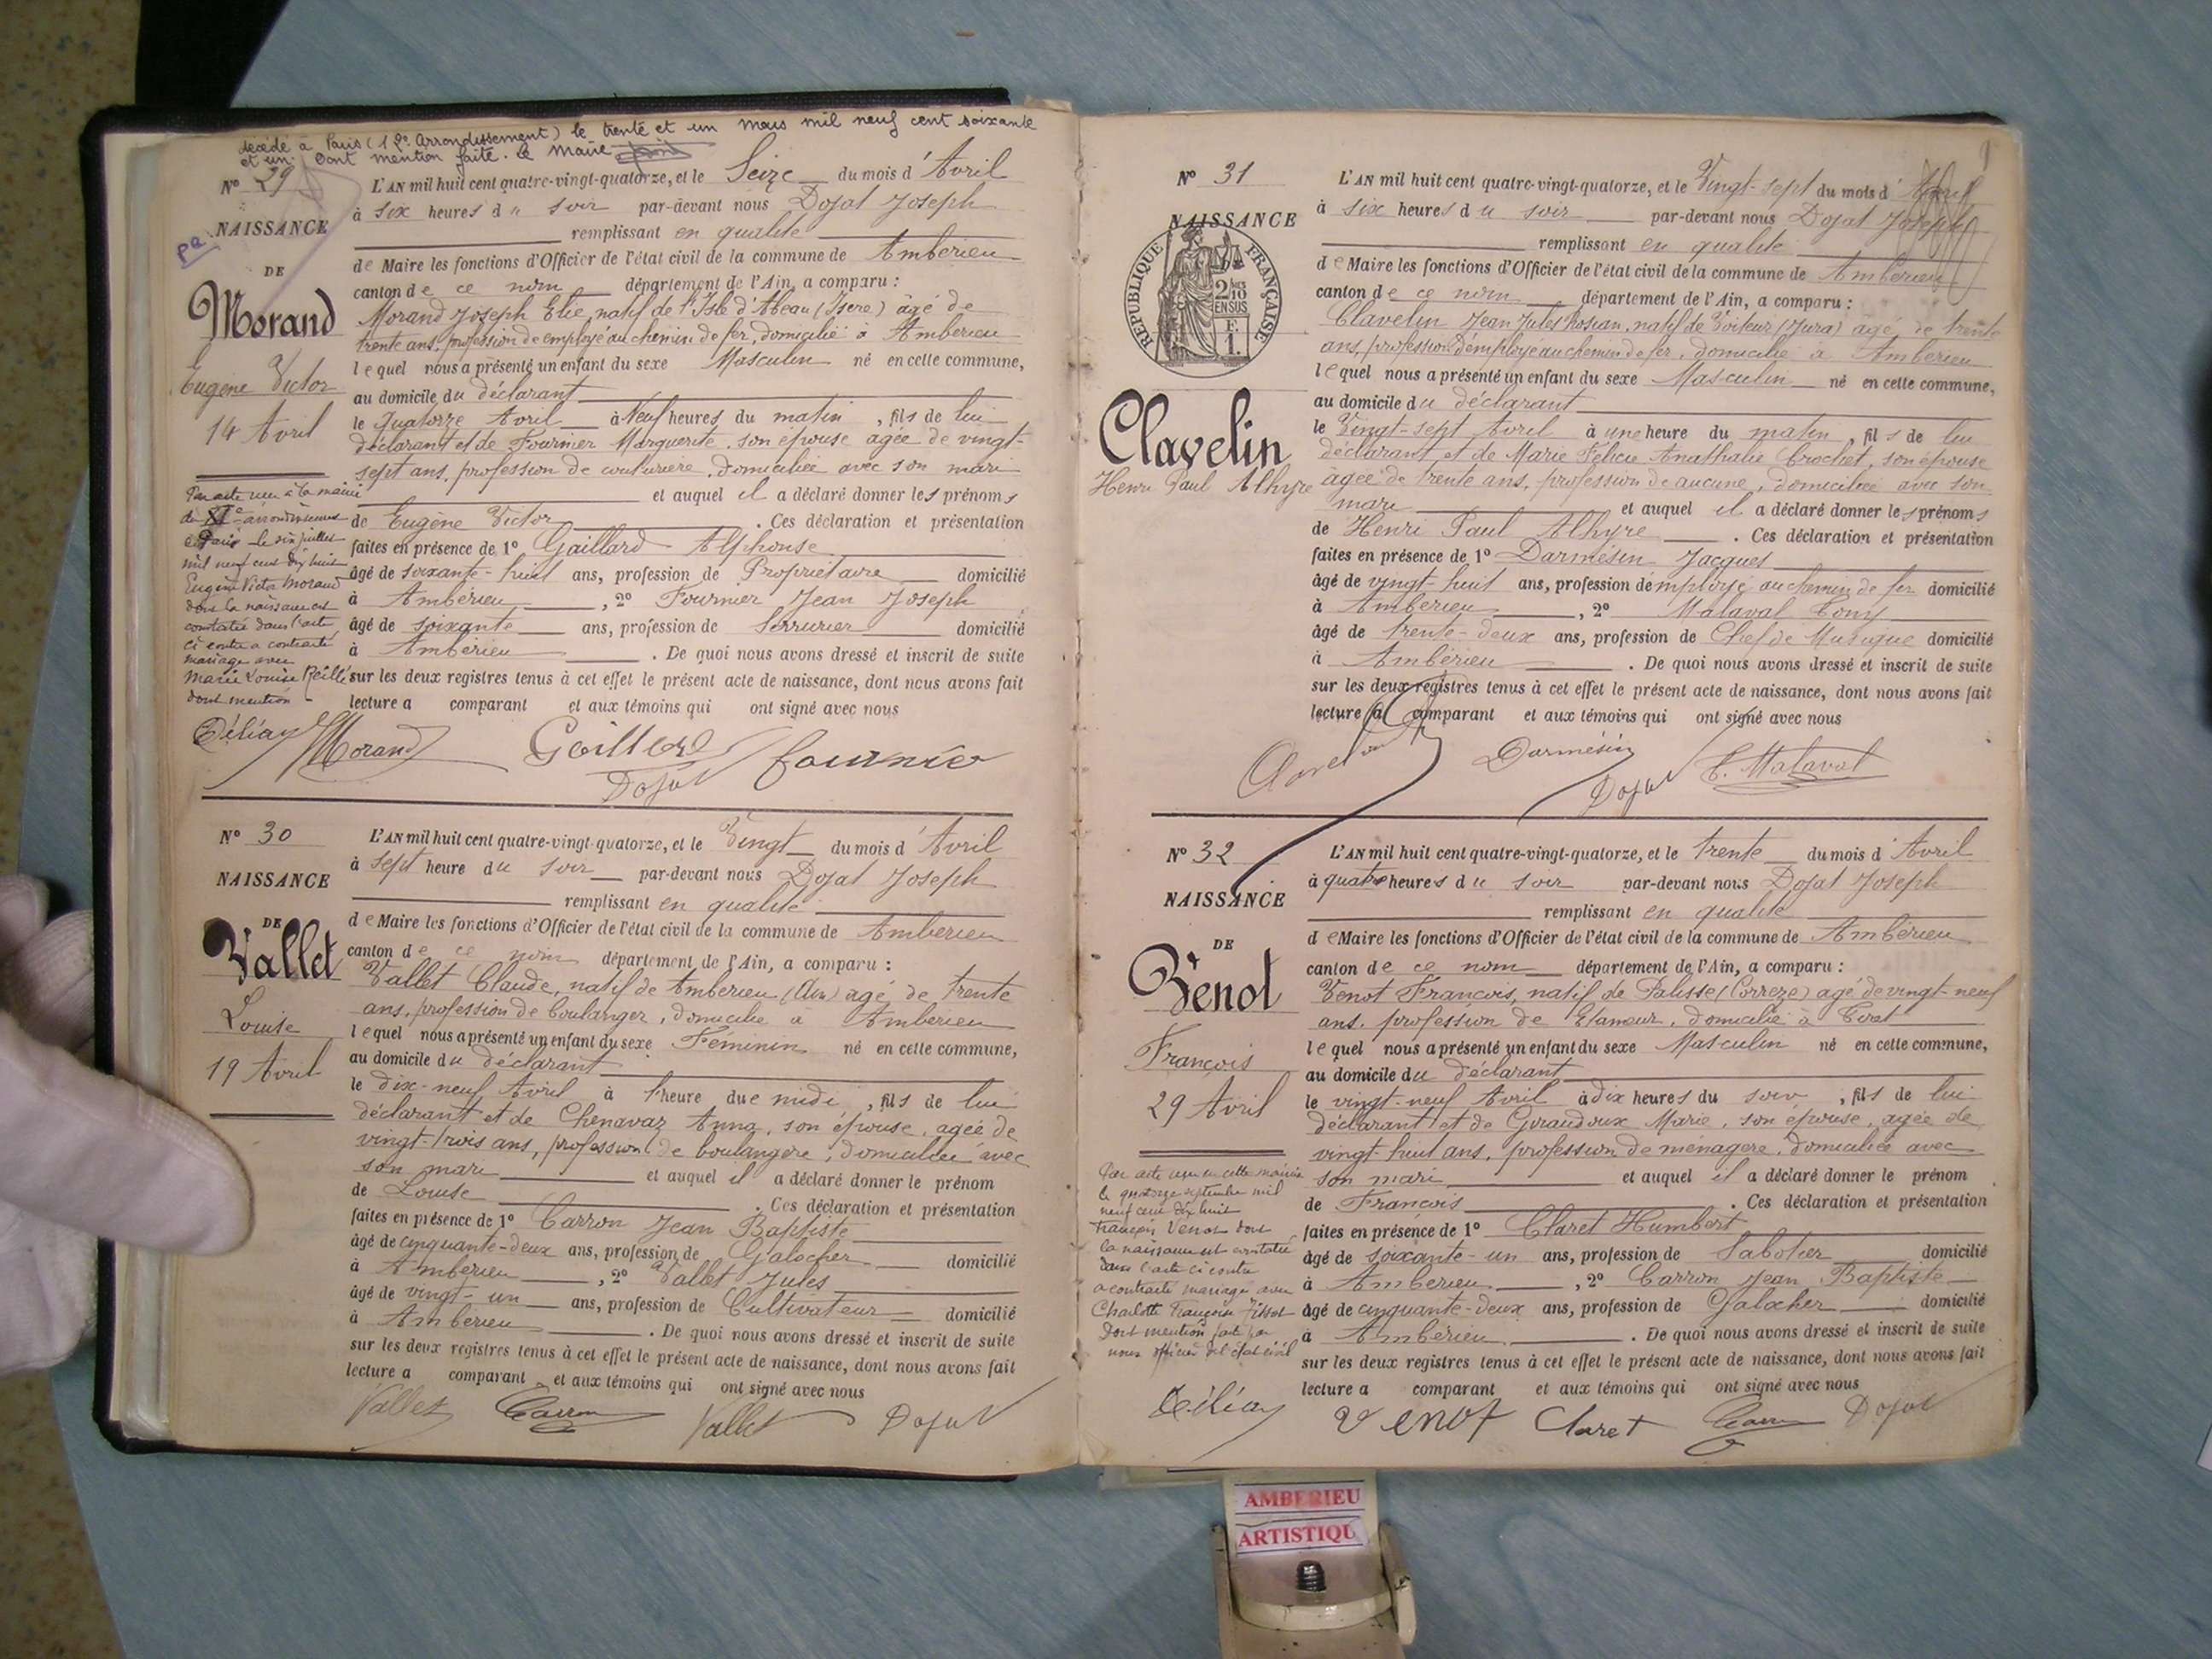 décédé à Paris (12e Arrondissement) le trente et un mars mil neuf cent soixante
et un. Dont mention faite. Le Maire
No 29
NAISSANCE
DE
Morand
Eugène Victor
14 Avril
L'AN mil huit cent quatre-vingt-quatorze, et le Seize du mois d'Avril
à six heures du soir par-devant nous Dojat Joseph
remplissant en qualité
de Maire les fonctions d'Officier de l'état civil de la commune de Ambérieu
canton de ce nom département de l'Ain, a comparu :
Morand Joseph Elie, natif de l'Isle d'Abeau (Isère) âgé de
trente ans, profession de employé au chemin de fer, domicilié à Ambérieu
lequel nous a présenté un enfant du sexe Masculin né en cette commune,
au domicile du déclarant
le Quatorze Avril à Neuf heures du matin, fils de lui
déclarant et de Fournier Marguerite, son épouse agée de vingt-
sept ans, profession de couturière, domiciliée avec son mari
et auquel il a déclaré donner les prénoms
de Eugène Victor. Ces déclaration et présentation
faites en présence de 1o Gaillard Alphonse
âgé de soixante-huit ans, profession de Propriétaire domicilié
à Ambérieu, 2o Fournier Jean Joseph
âgé de soixante ans, profession de Serrurier domicilié
à Ambérieu. De quoi nous avons dressé et inscrit de suite
sur les deux registres tenus à cet effet le présent acte de naissance, dont nous avons fait
lecture a comparant et aux témoins qui ont signé avec nous
Par acte reçu à la mairie
du XIe arrondissement
de Paris le six juillet
mil neuf cent dix huit
Eugène Victor Morand
dont la naissance est
constatée dans l'acte
ci contre a contracté
mariage avec
Marie Louise
dont mention
Morand Gaillard Fournier
Dojat
No 30
NAISSANCE
DE
Vallet
Louise
19 Avril
L'AN mil huit cent quatre-vingt-quatorze, et le Vingt du mois d'Avril
à sept heure du soir par-devant nous Dojat Joseph
remplissant en qualité
de Maire les fonctions d'Officier de l'état civil de la commune de Ambérieu
canton de ce nom département de l'Ain, a comparu :
Vallet Claude, natif de Ambérieu (Ain) agé de trente
ans, profession de boulanger, domicilié à Ambérieu
lequel nous a présenté un enfant du sexe Féminin né en cette commune,
au domicile du déclarant
le dix-neuf Avril à 1 heure due midi, fils de lui
déclarant et de Chenavaz Anna, son épouse, agée de
vingt-trois ans, profession de boulangère, domiciliée avec
son mari et auquel il a déclaré donner le prénom
de Louise. Ces déclaration et présentation
faites en présence de 1o Carron Jean Baptiste
âgé de cinquante-deux ans, profession de Galocher domicilié
à Ambérieu, 2o Vallet Jules
âgé de vingt-un ans, profession de Cultivateur domicilié
à Ambérieu. De quoi nous avons dressé et inscrit de suite
sur les deux registres tenus à cet effet le présent acte de naissance, dont nous avons fait
lecture a comparant et aux témoins qui ont signé avec nous
Vallet Carron Vallet Dojat
No 31
NAISSANCE
RÉPUBLIQUE FRANÇAISE
2/10 EN SUS
1 F.
Clavelin
Henri Paul Alhyre
L'AN mil huit cent quatre-vingt-quatorze, et le Vingt-sept du mois d'Avril
à six heures du soir par-devant nous Dojat Joseph
remplissant en qualité
de Maire les fonctions d'Officier de l'état civil de la commune de Ambérieu
canton de ce nom département de l'Ain, a comparu :
Clavelin Jean Jules natif de Voiteur (Jura) agé de trente
ans, profession d'employé au chemin de fer, domicilié à Ambérieu
lequel nous a présenté un enfant du sexe Masculin né en cette commune,
au domicile du déclarant
le Vingt-sept Avril à une heure du matin, fils de lui
déclarant et de Marie Félicie Anathalie Crochet, son épouse
agée de trente ans, profession de aucune, domiciliée avec son
mari et auquel il a déclaré donner les prénoms
de Henri Paul Alhyre. Ces déclaration et présentation
faites en présence de 1o Darmésin Jacques
âgé de vingt-huit ans, profession d'employé au chemin de fer domicilié
à Ambérieu, 2o Malaval Tony
âgé de trente-deux ans, profession de Chef de Musique domicilié
à Ambérieu. De quoi nous avons dressé et inscrit de suite
sur les deux registres tenus à cet effet le présent acte de naissance, dont nous avons fait
lecture a comparant et aux témoins qui ont signé avec nous
Clavelin Darmésin Dojat T. Malaval
No 32
NAISSANCE
DE
Vénot
François
29 Avril
L'AN mil huit cent quatre-vingt-quatorze, et le trente du mois d'Avril
à quatre heures du soir par-devant nous Dojat Joseph
remplissant en qualité
de Maire les fonctions d'Officier de l'état civil de la commune de Ambérieu
canton de ce nom département de l'Ain, a comparu :
Venot François, natif de Palisse (Corrèze) agé de vingt-neuf
ans, profession de Etameur, domicilié à
lequel nous a présenté un enfant du sexe Masculin né en cette commune,
au domicile du déclarant
le vingt-neuf Avril à dix heures du soir, fils de lui
déclarant et de Giraudoux Marie, son épouse, agée de
vingt-huit ans, profession de ménagère, domiciliée avec
son mari et auquel il a déclaré donner le prénom
de François. Ces déclaration et présentation
faites en présence de 1o Claret Humbert
âgé de soixante-un ans, profession de Sabotier domicilié
à Ambérieu, 2o Carron Jean Baptiste
âgé de cinquante-deux ans, profession de Galocher domicilié
à Ambérieu. De quoi nous avons dressé et inscrit de suite
sur les deux registres tenus à cet effet le présent acte de naissance, dont nous avons fait
lecture a comparant et aux témoins qui ont signé avec nous
Par acte reçu en cette mairie
le quatorze septembre mil
neuf cent dix huit
François Venot dont
la naissance est constatée
dans l'acte ci contre
a contracté mariage avec
Charlotte Françoise Tissot
Dont mention faite par
nous officier de l'état civil
Venot Claret Carron Dojat
AMBERIEU
ARTISTIQU